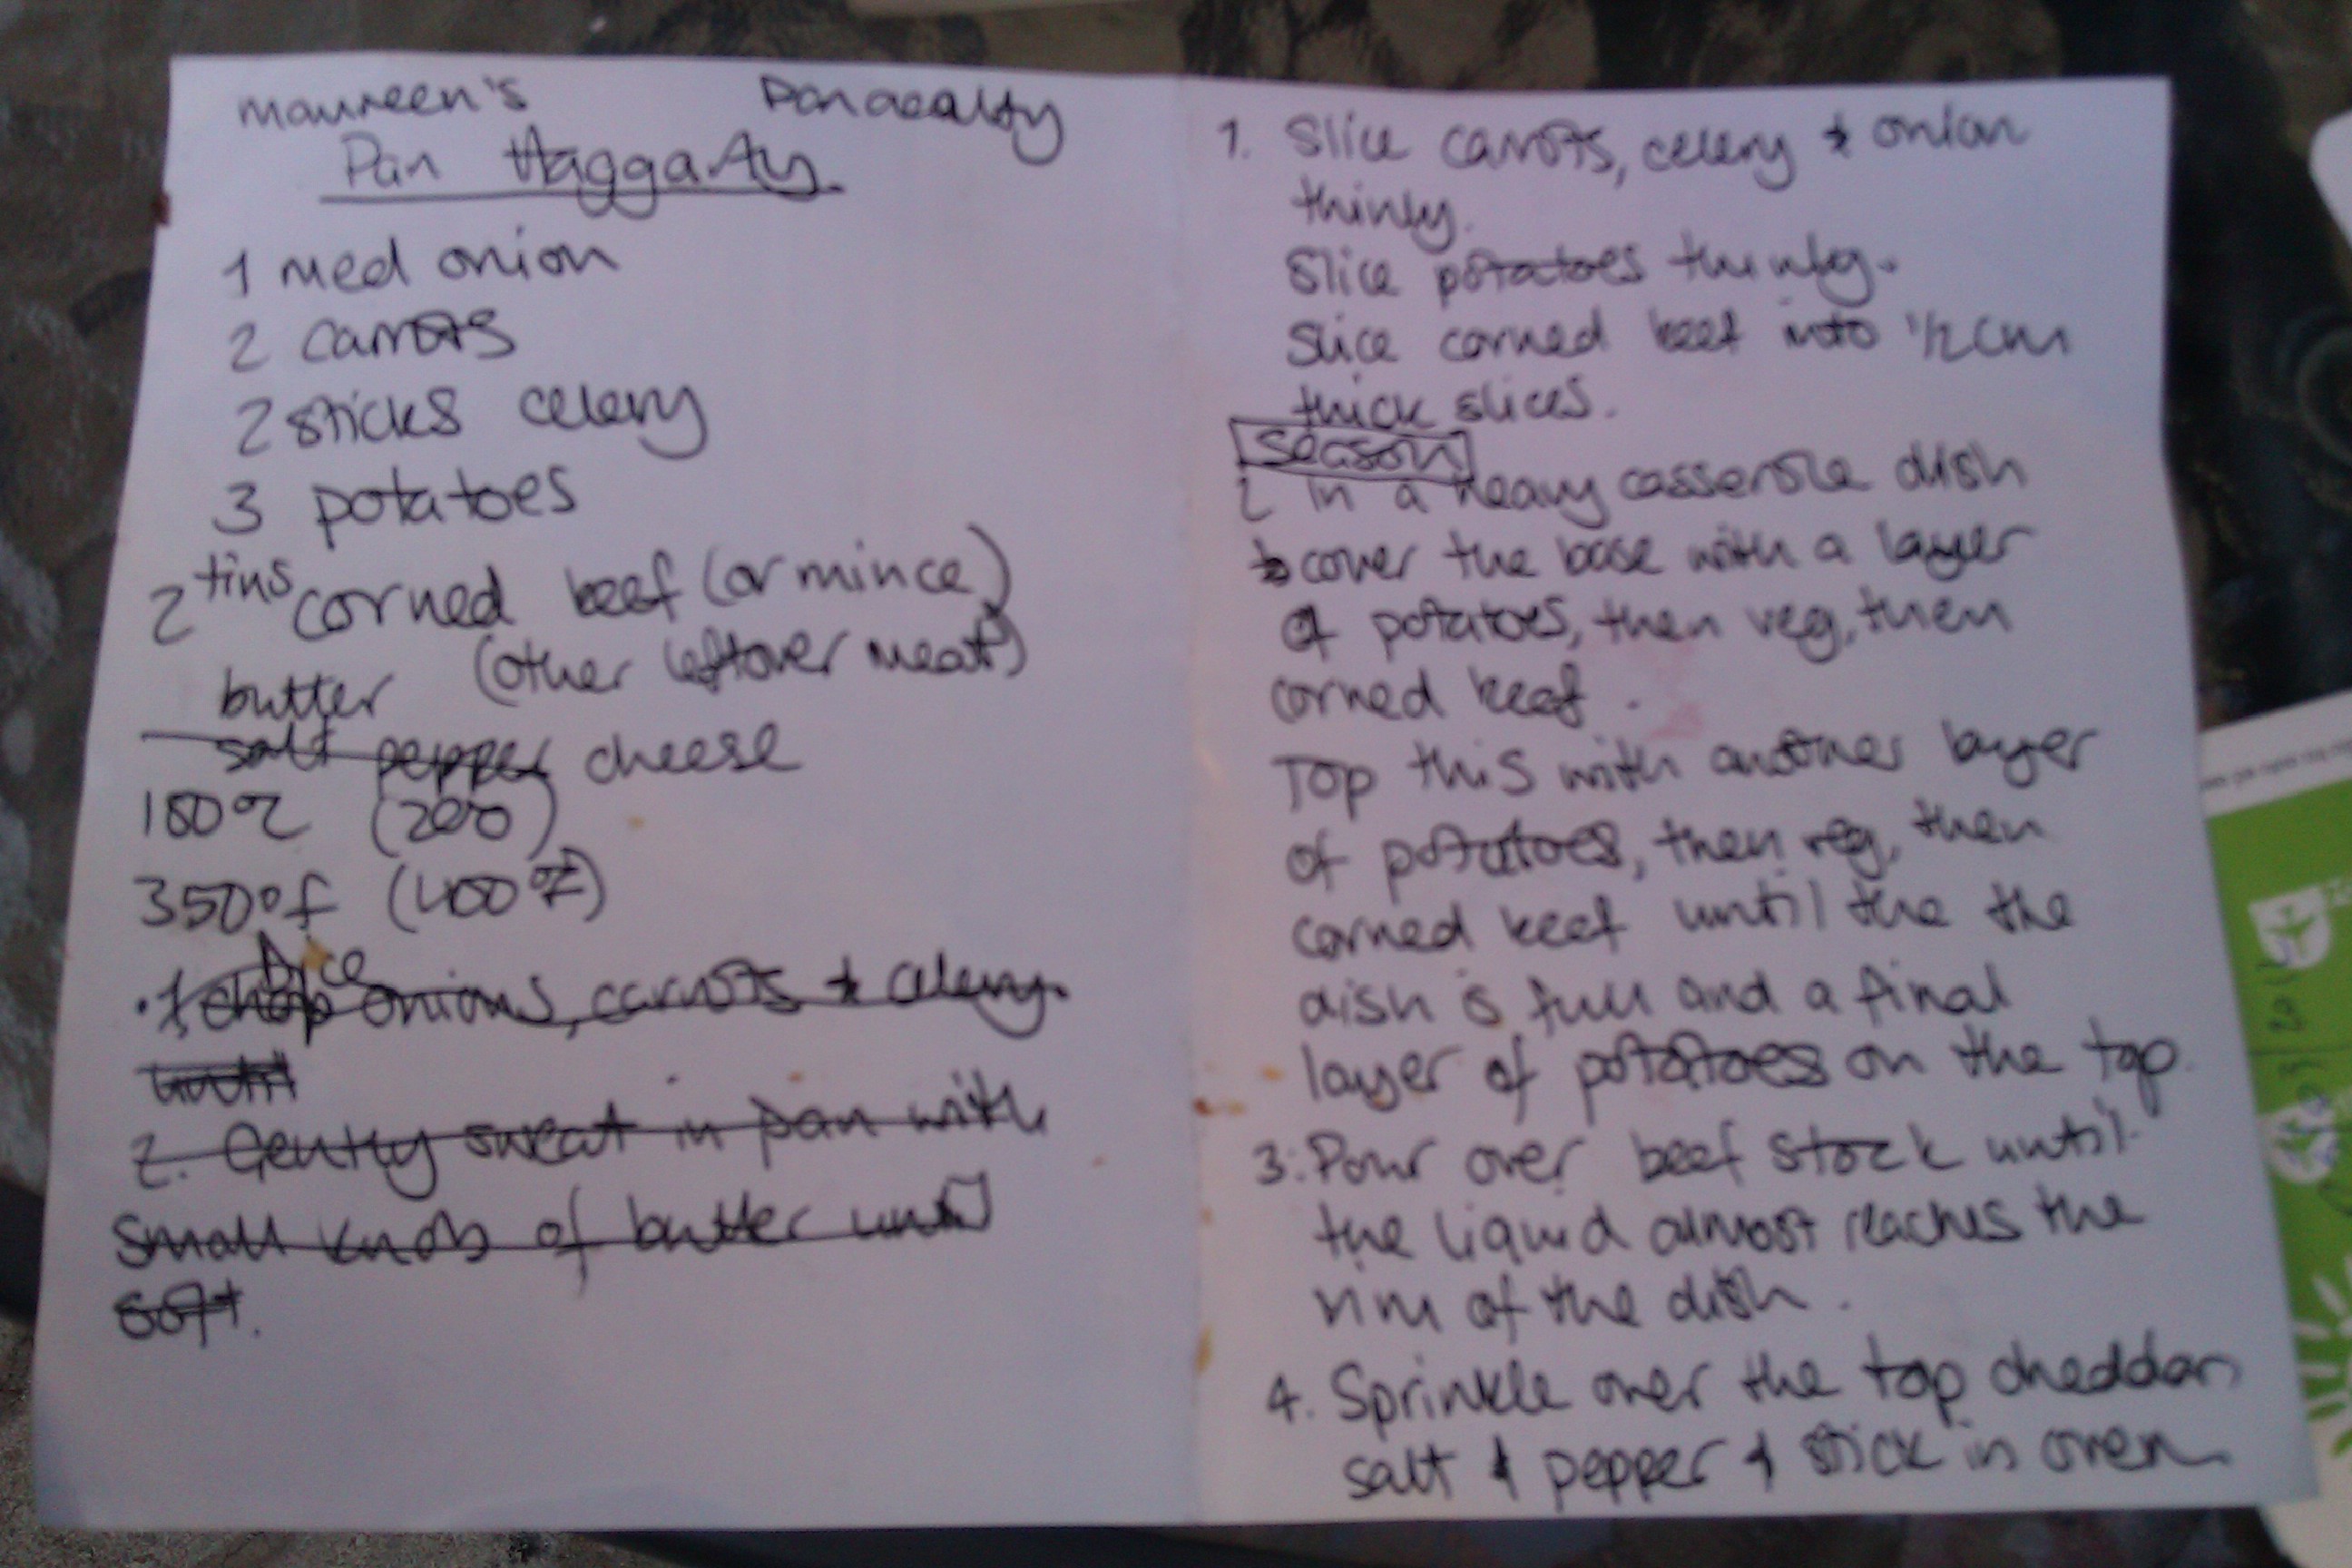 Maureen's Panaealty
Pan Haggarty.
1 med onion
2 carrots
2 sticks celery
3 potatoes
2 tins corned beef (or mince)
butter (other leftover meat)
salt pepper cheese
180°C (200)
350°f (400°F)
.1 chop Dice onions, carrots & celery.
until
2. Gently sweat in pan with
small knob of butter until
soft.
1. Slice carrots, celery & onion
thinly.
Slice potatoes thinly.
Slice corned beef into 1/2 cm
thick slices.
Season
2 in a heavy casserole dish
to cover the base with a layer
of potatoes, then veg, then
corned beef.
Top this with another layer
of potatoes, then veg, then
corned beef until the the
dish is full and a final
layer of potatoes on the top.
3. Pour over beef stock until
the liquid almost reaches the
rim of the dish.
4. Sprinkle over the top cheddar,
salt & pepper & stick in oven